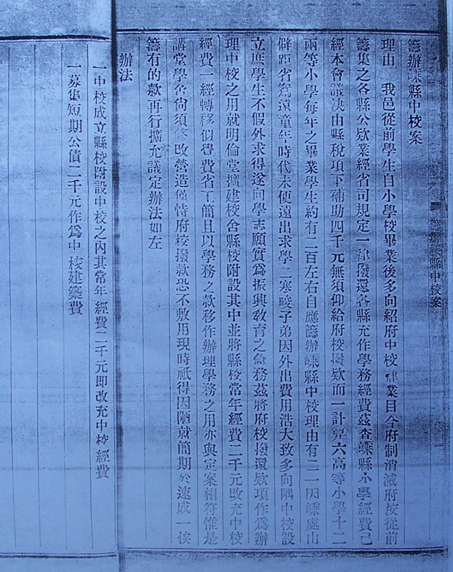 籌辦嵊縣中校案
理由 我邑從前學生自小學校畢業後多向紹府中校肄業目今府制消滅府校從前
籌集之各縣公欵業經省司規定一律撥還各縣充作學務經費茲查嵊縣小學經費已
經本會議决由縣稅項下補助四千元無須仰給府校撥欵而一計昇六高等小學十二
兩等小學每年之畢業學生約有二百左右自應籌辦嵊縣中校理由有二一因嵊處山
僻距省窵遠童年時代未便遠出求學二寒畯子弟因外出費用浩大致多向隅中校設
立庶學生不假外求得遂向學志願實爲振興敎育之急務茲將府校撥還欵項作爲辦
理中校之用就明倫堂擴建校舍縣校附設其中並將縣校常年經費二千元改充中校
經費一經轉移似得費省工簡且以學務之款移作辦理學務之用亦與定案相符惟是
講堂學舍尙須修改營造僅恃府校撥款恐不敷用現時祇得因陋就簡期於速成一俟
籌有的款再行擴充議定辦法如左
辦法
一中校成立縣校附設中校之內其常年經費二千元即改充中校經費
一募集短期公債二千元作爲中校建築費